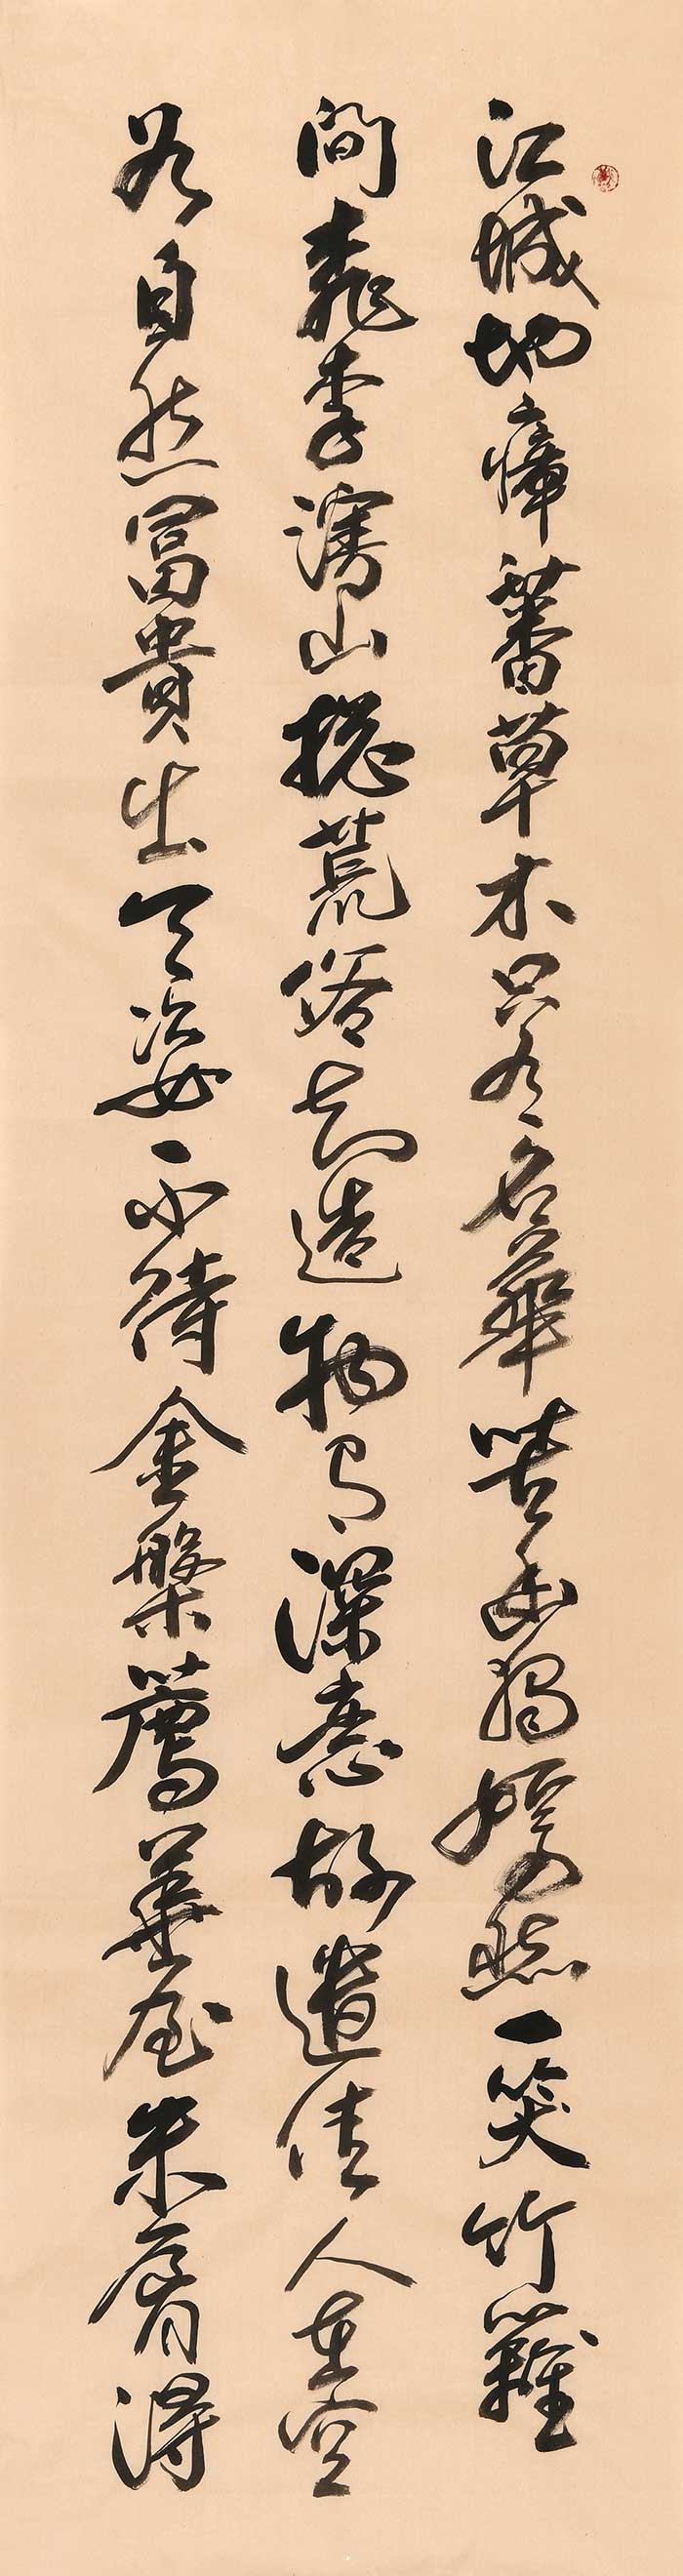 江城地瘴蕃草木只有名華苦幽獨嫣然一笑竹籬
間桃李漫山揔荒俗知造物有深意故遣佳人在空
谷自然富貴出天姿不待金盤薦華屋朱脣得